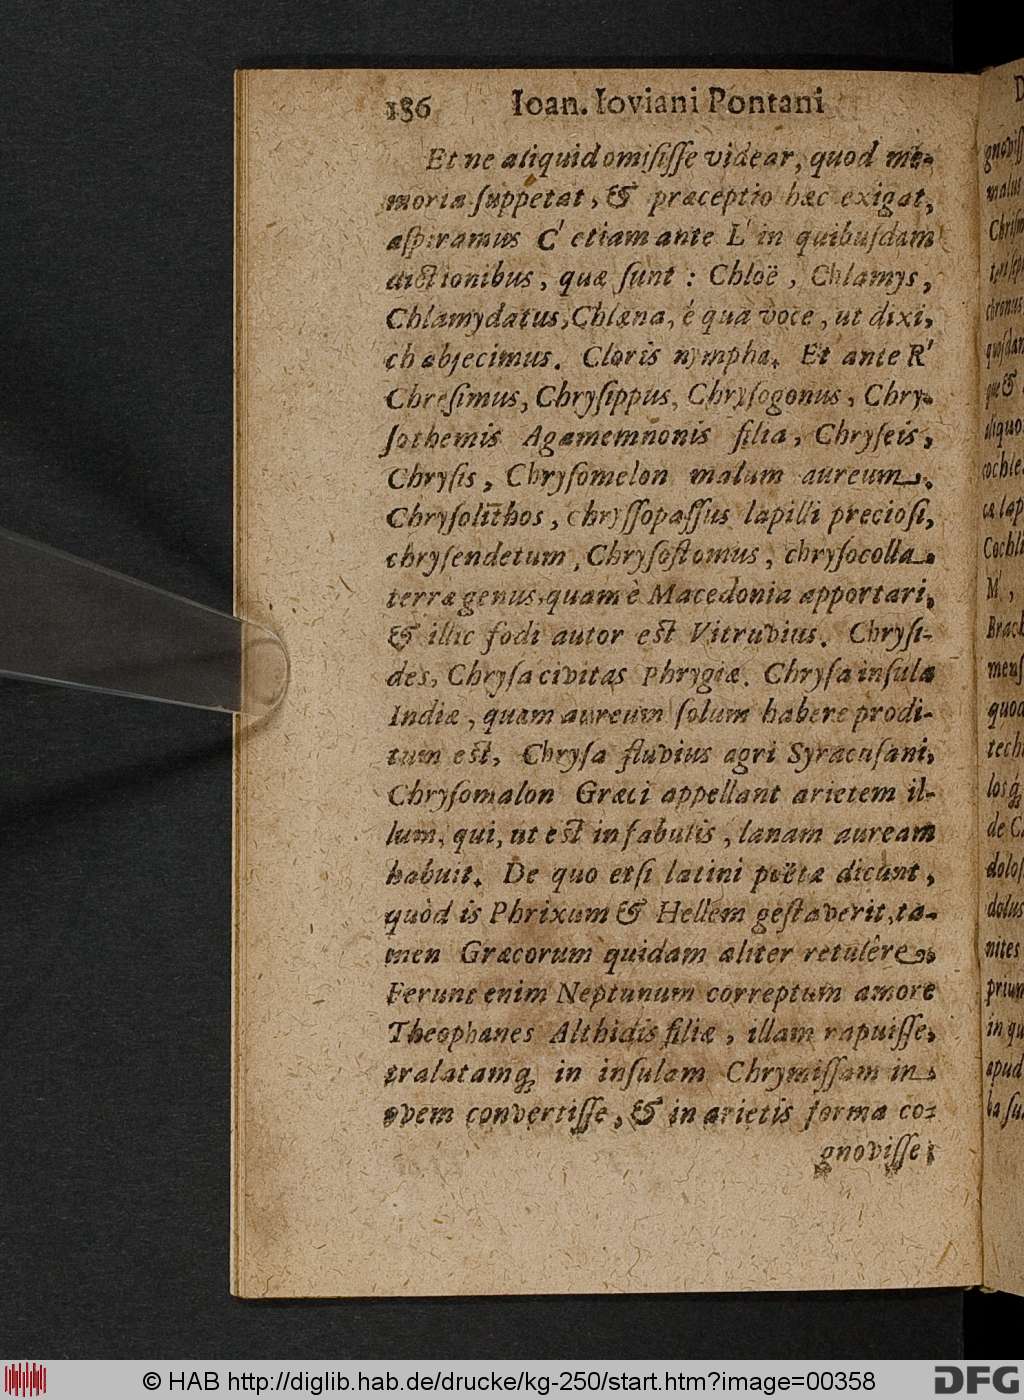 186 Ioan. Ioviani Pontani
Et ne aliquid omisiſſe videar, quod me-
moria ſuppetat, & præceptio hæc exigat,
aſpiramus C' etiam ante L' in quibuſdam
dictionibus, quæ ſunt : Chloë, Chlamys,
Chlamydatus, Chlæna, é quâ voce, ut dixi,
ch abjecimus. Cloris nympha. Et ante R'
Chreſimus, Chryſippus, Chryſogonus, Chry-
ſothemis Agamemnonis filia, Chryſeis,
Chryſis, Chryſomelon malum aureum,
Chryſolithos, chryſſopaſſus lapilli precioſi,
chryſendetum, Chryſoſtomus, chryſocolla
terræ genus, quam è Macedonia apportari,
& illic fodi autor est Vitruvius. Chryſi-
des, Chryſa civitas Phrygiæ. Chryſa inſula
Indiæ, quam aureum ſolum habere prodi-
tum est, Chryſa fluvius agri Syracuſani,
Chryſomalon Græci appellant arietem il-
lum, qui, ut est in fabulis, lanam auream
habuit. De quo etſi latini poëtæ dicunt,
quòd is Phrixum & Hellem geſtaverit, ta-
men Græcorum quidam aliter retulêre,
Ferunt enim Neptunum correptum amore
Theophanes Althidis filiæ, illam rapuiſſe,
tralatamq; in inſulam Chrymiſſam in
ovem convertiſſe, & in arietis forma co-
gnoviſſe;
© HAB http://diglib.hab.de/drucke/kg-250/start.htm?image=00358
DFG